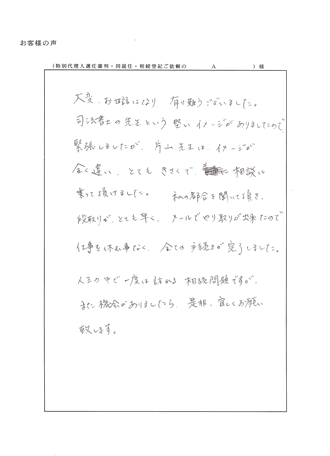 お客様の声
(特別代理人選任審判・同就任・相続登記ご依頼の A )様
大変、お世話になり 有り難うございました。
司法書士の先生という 堅い イメージがありましたので
緊張しましたが、片山先生は、イメージが
全く違い、とても きさくで、 相談に
乗って頂けました。 私の都合を聞いて頂き、
段取りが、とても早く、メールでやり取りが出来たので
仕事を休む事なく、全ての手続きが完了しました。
人生の中で一度は訪れる 相続問題ですが、
また機会がありましたら、是非、宜しくお願い
致します。